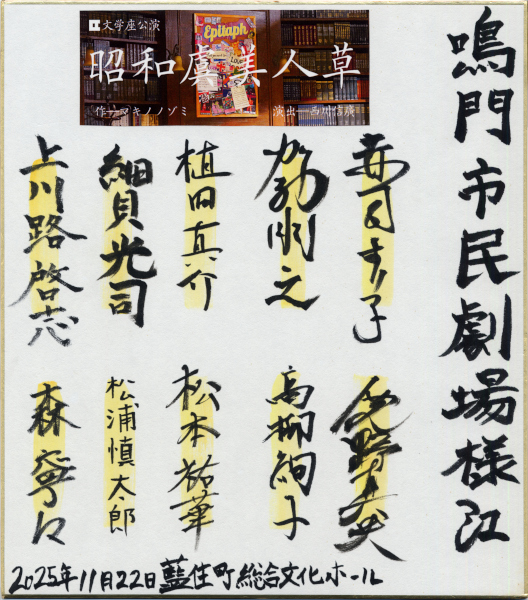 鳴門市民劇場様江
文学座公演
昭和虞美人草
作=マキノノゾミ
演出=西川信廣
Epitaph
赤司まり子
加納朋之
植田真介
細貝光司
上川路啓志
高柳絢子
松本祐華
松浦慎太郎
森寧々
2025年11月22日藍住町総合文化ホール